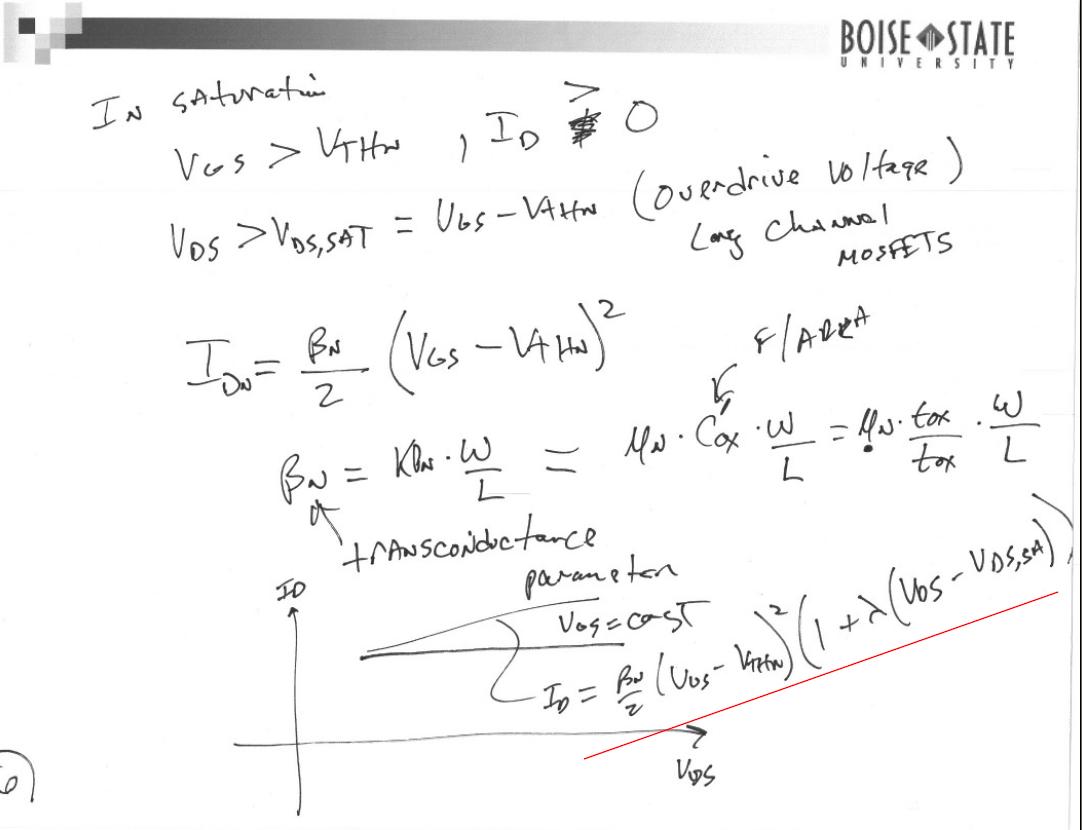 BOISE STATE
UNIVERSITY
IN SATURATION
VGS > VTHN , ID > 0
VDS > VDS,SAT = VGS - VTHN (overdrive voltage)
Long Channel
MOSFETS
IDN = βN/2 (VGS - VTHN)²
F/AREA
βN = KPN · W/L = μN · Cox · W/L = μN · tox/tox · W/L
transconductance
parameter
ID
VGS = const
ID = βN/2 (VGS - VTHN)² (1 + λ(VDS - VDS,SAT))
VDS